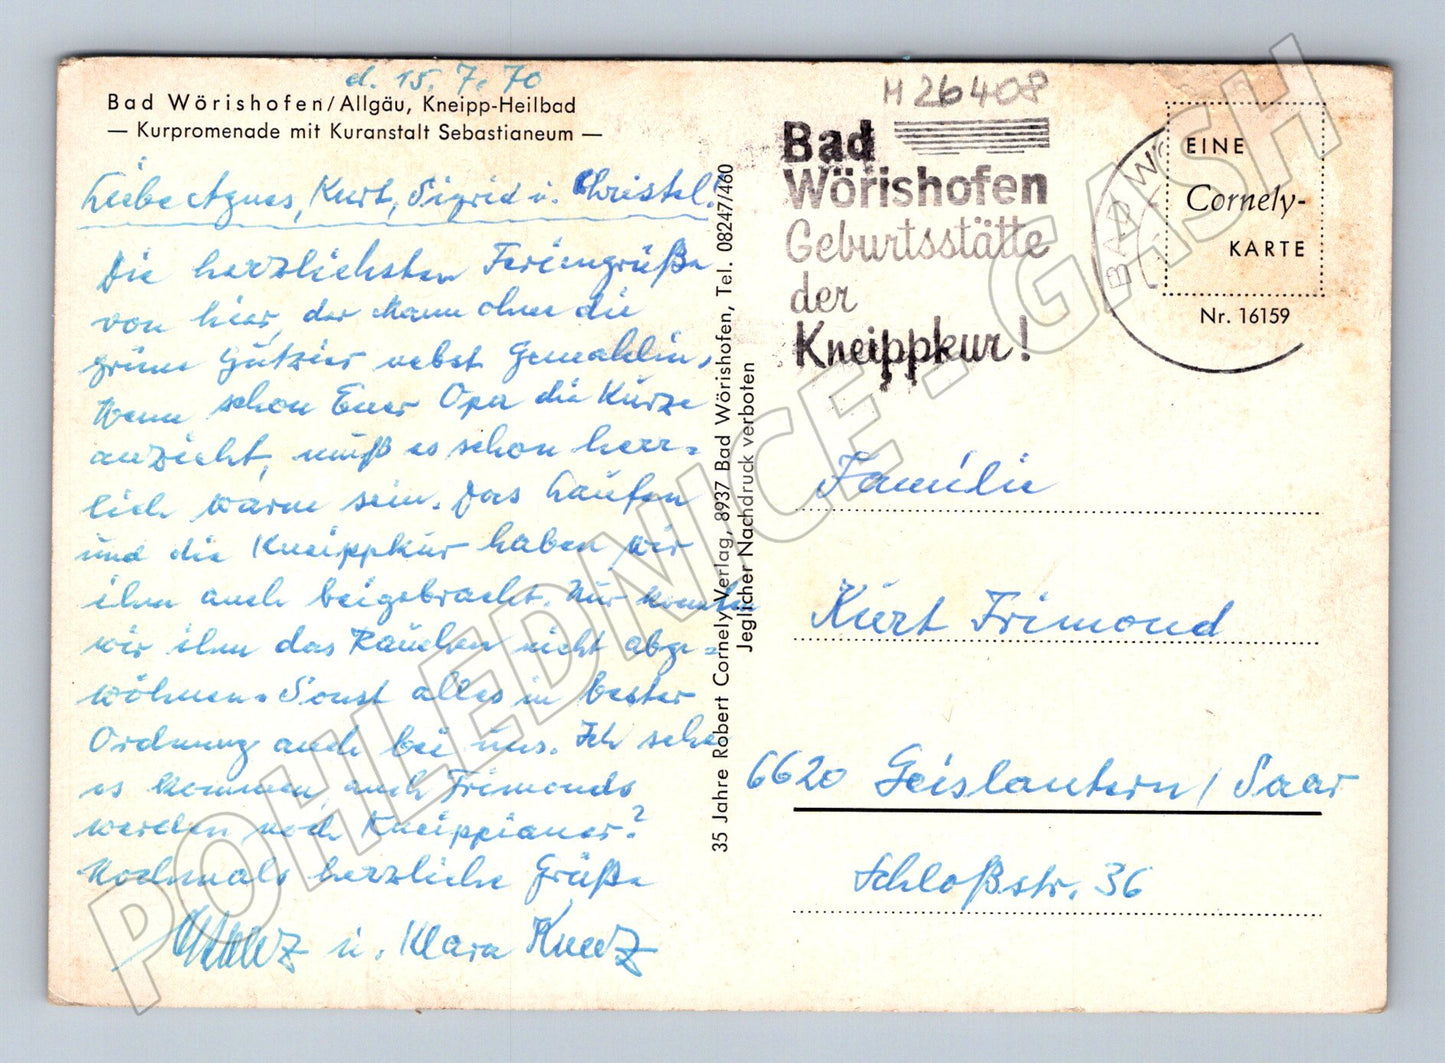 d. 15. 7. 70
Bad Wörishofen/Allgäu, Kneipp-Heilbad
— Kurpromenade mit Kuranstalt Sebastianeum —
Liebe Agnes, Kurt, Sigrid u. Christel!
Die herzlichsten Feriengrüße
von hier, der Mann ohne die
grüne nebst Gemahlin,
Wenn schon Euer Opa die Kürze
anzieht, muß es schon herr-
lich warm sein. Das Laufen
und die Kneippkur haben wir
ihm auch beigebracht. Nur konnten
wir ihm das Rauchen nicht abge-
wöhnen. Sonst alles in bester
Ordnung auch bei uns. Ich sehe
es kommen, auch Frimonds
werden noch Kneippianer?
Nochmals herzliche Grüße
u. Klara Kunz
35 Jahre Robert Cornely Verlag, 8937 Bad Wörishofen, Tel. 08247/460
Jeglicher Nachdruck verboten
M 26408
Bad
Wörishofen
Geburtsstätte
der
Kneippkur!
BAD WÖ
EINE
Cornely-
KARTE
Nr. 16159
Familie
Kurt Frimond
6620 Geislautern / Saar
Schloßstr. 36
POHLEDNICE - GASH